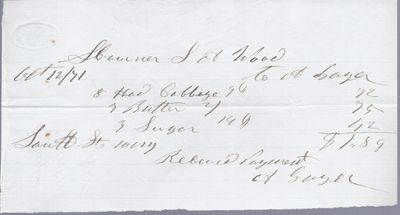 Steamer S A Wood
Oct 12/71 to A Gager
8 Head Cabbage 9¢ 72
3 Butter 2/ 75
3 Sugar 14¢ 42
South St $1.89
Received Payment
A Gager